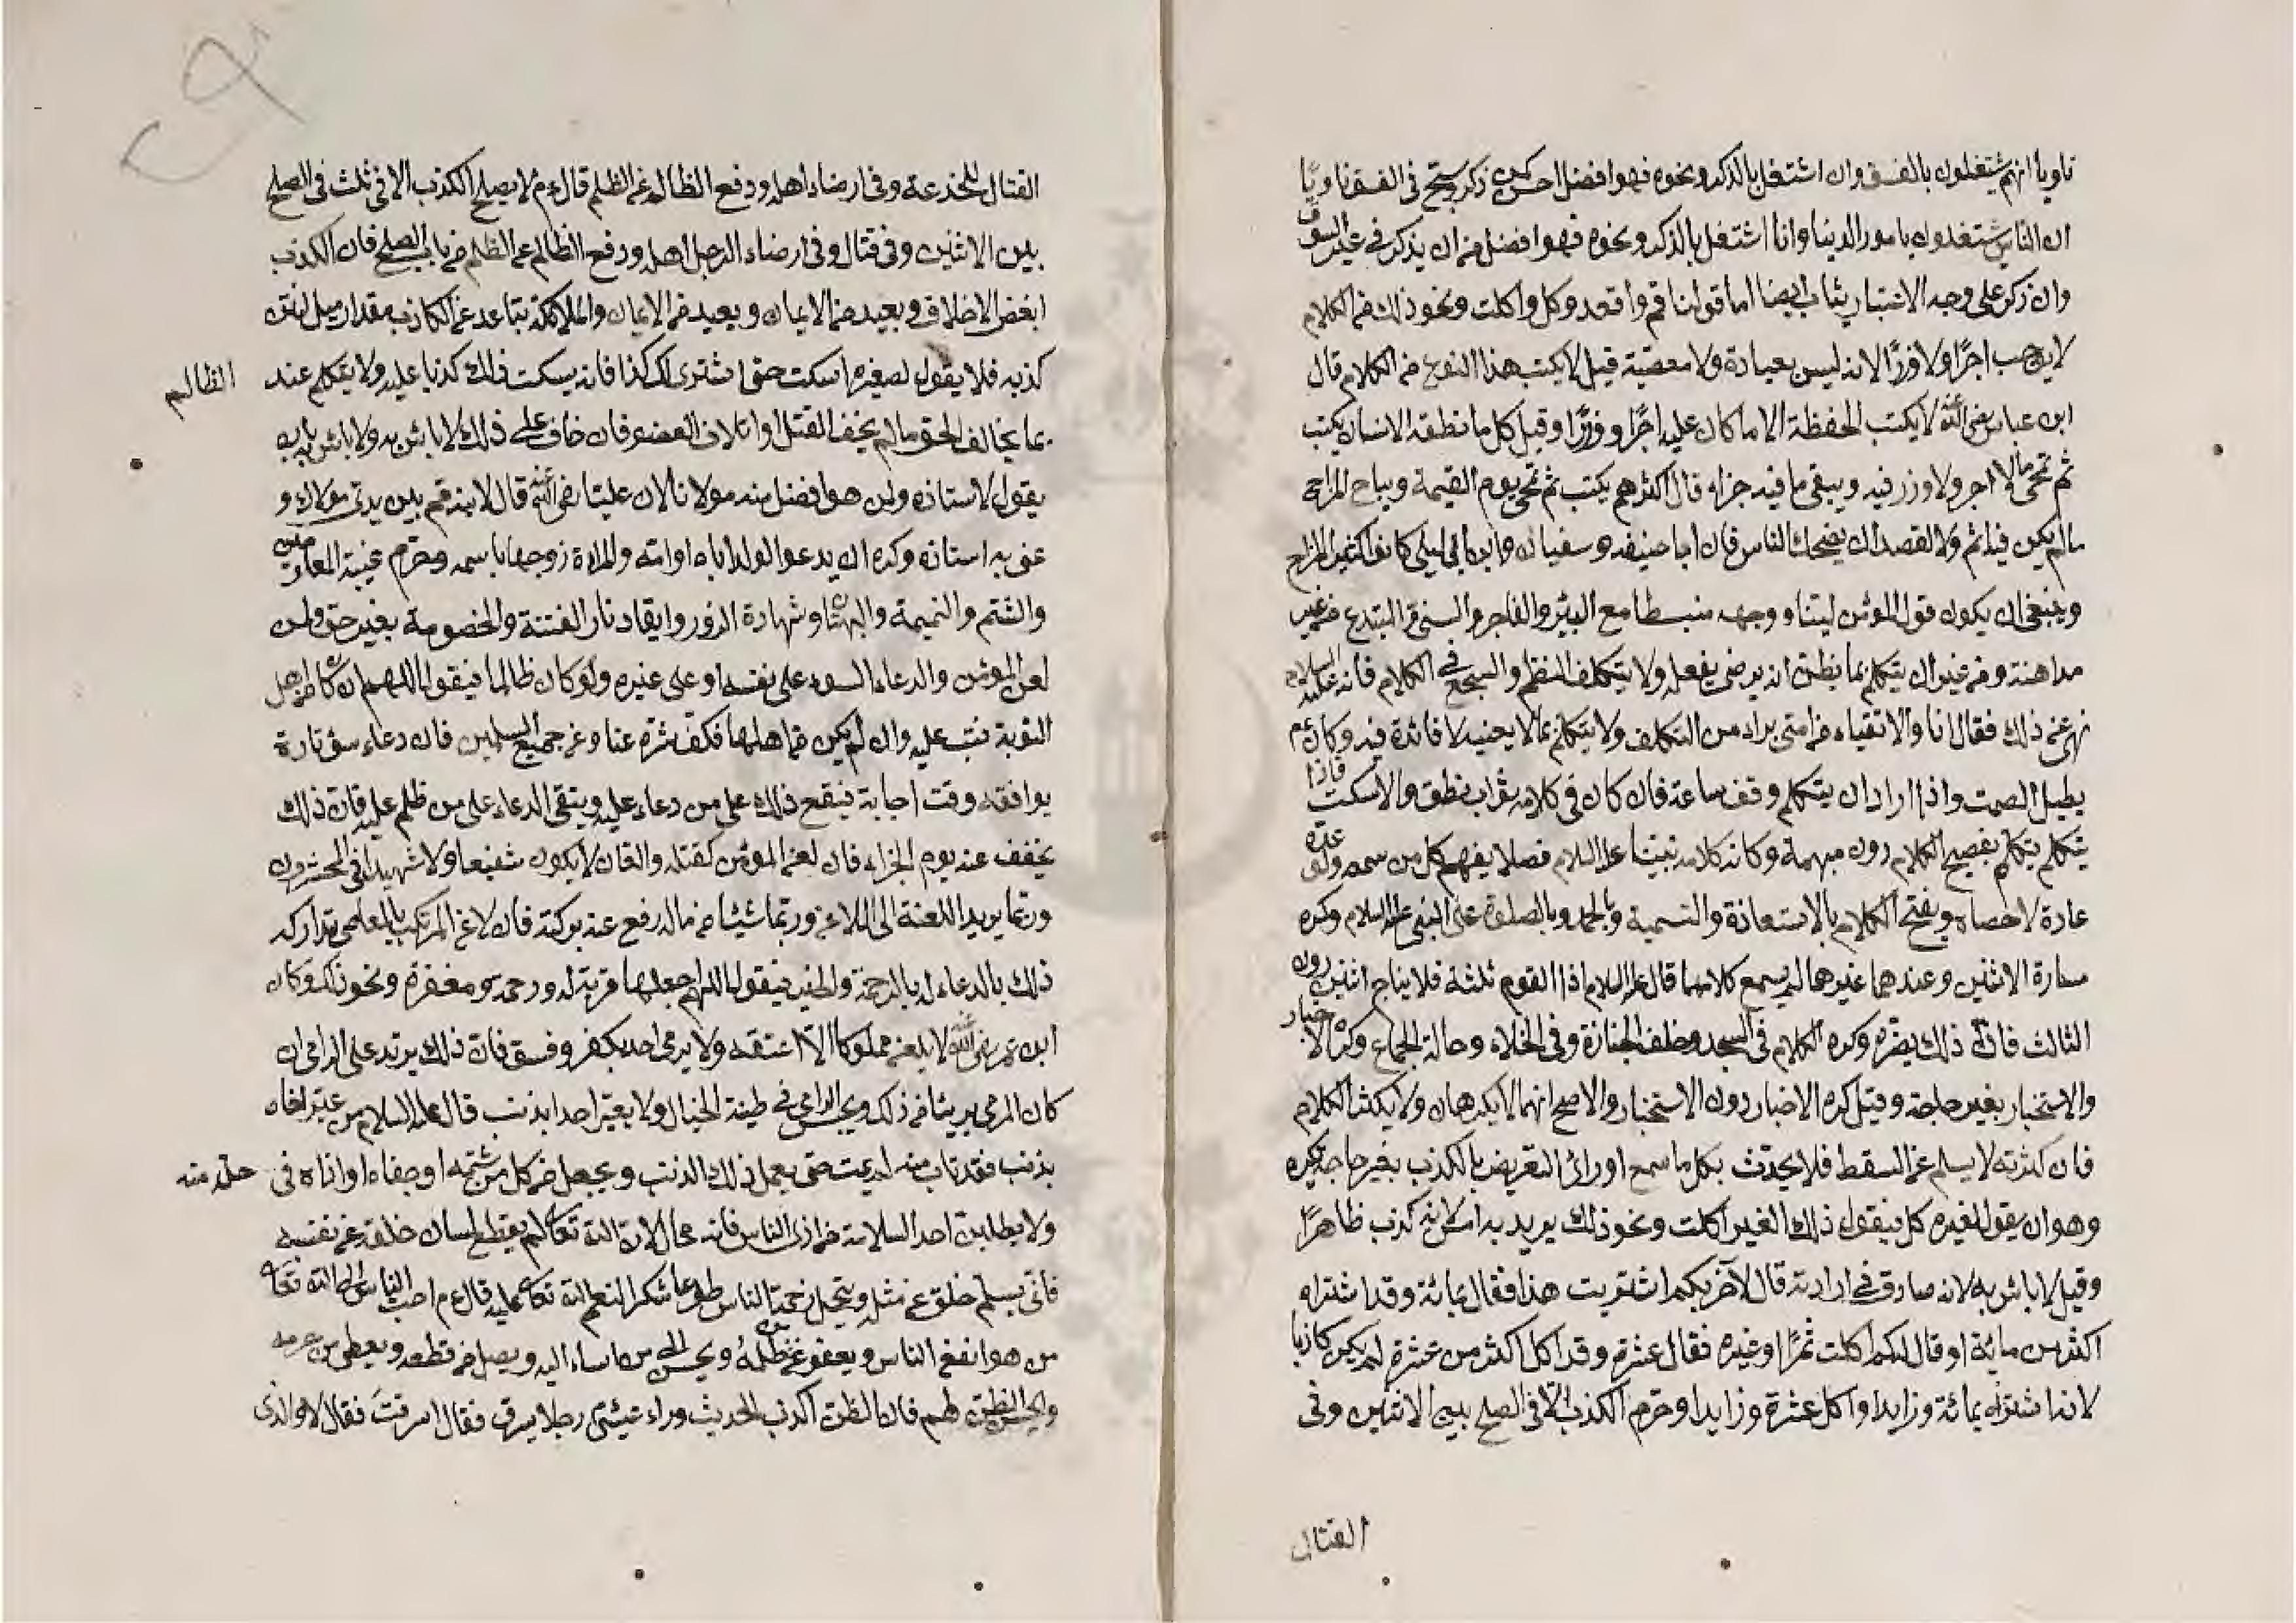 ناويا انهم يشتغلون بالفسق وان اشتغل بالذكر ونحوه فهو افضل احسن كمن ذكر وسبح في الفسق ناويا
ان الناس يشتغلون بامور الدنيا وانا اشتغل بالذكر ونحوه فهو افضل من ان يذكر في غير السوق
وان ذكر على وجه الاعتبار يثاب ايضا اما قولنا قم واقعد وكل واكلت ونحو ذلك من الكلام
لا يوجب اجرا ولا وزرا لانه ليس بعبادة ولا معصية قيل لا يكتب هذا النوع من الكلام قال
ابن عباس رضى الله عنه لا يكتب الحفظة الا ما كان عليه اجرا ووزرا وقيل كل ما نطقه الانسان يكتب
ثم تمحى ما لا اجر ولا وزر فيه ويبقى ما فيه جزاء قال اكثرهم يكتب ثم تمحى يوم القيمة ويباح المزاح
ما لم يكن فيه اثم ولا القصد ان يضحك الناس فان ابا حنيفه وسفيان وابن ابى ليلى كانوا كثير المزاح
وينبغى ان يكون قول المؤمن لينا ووجهه منبسطا مع البر والفاجر والسنى والمبتدع من غير
مداهنة ومن غير ان يتكلم بما يظن انه يرضى بفعله ولا يتكلف النظم والسجع في الكلام فانه عليه السلام
نهى عن ذلك فقال انا والاتقياء من امتى براء من التكلف ولا يتكلم بما لا يعنيه لا فائدة فيه وكان ءم
يطيل الصمت واذا اراد ان يتكلم وقف ساعة فان كان فى كلامه ثواب نطق والا سكت فاذا
يتكلم يتكلم بفصيح الكلام دون مبهمة وكانه كلام نبينا عليه السلام فصلا يفهم كل من سمعه ولو عده
عادة لاحصاه ويفتح الكلام بالاستعاذة والتسمية وبالحمد وبالصلوة على النبى عليه السلام وكره
مسارة الاثنين وعندهما غيرهما لم يسمع كلامهما قال عليه السلام اذا القوم ثلثة فلا يناج اثنين دون
الثالث فان ذلك يضره وكره الكلام فى المسجد وخلف الجنازة وفى الخلاء وحالة الجماع وكره الاخبار
والاستخبار بغير حاجة وقيل كره الاخبار دون الاستخبار والاصح انهما لا يكرهان ولا يكثر الكلام
فان كثرته لا يسلم عن السقط فلا يحدث بكل ما سمع او رائ التعريض بالكذب بغير حاجة يكره
وهو ان يقول لغيره كل فيقول ذلك الغير اكلت ونحو ذلك يريد به امس لانه كذب ظاهرا
وقيل لا باس به لانه صادق في ارادته قال لآخر بكم اشتريت هذا فقال بمائة وقد اشتراه
اكثر من مائة او قال لكم اكلت تمرا وغيره فقال عشرة وقد اكل اكثر من عشرة لم يكن كاذبا
لانه اشتراه بمائة وزايدا واكل عشرة وزايدا وحرم الكذب الا فى الصلح بين الاثنين وفى
القتال
القتال للخدعة وفى ارضاء اهله ودفع الظالم عن الظلم قال ءم لا يصلح الكذب الا فى ثلث فى الصلح
بين الاثنين وفى قتال وفى ارضاء الرجل اهله ودفع الظالم عن الظلم من باب الصلح فان الكذب
ابغض الاخلاق وبعيد من الايمان وبعيد من الايمان والملائكة يتباعد عن الكاذب مقدار ميل لنتن
كذبه فلا يقول لصغيره اسكت حتى اشترى لك كذا فانه يسكت فذلك كذبا عليه ولا يتكلم عند الظالم
بما يخالف الحق ما لم يخف القتل او اتلاف العضو فان خاف على ذلك لا باس به ولا باس بان
يقول لاستاذه ولمن هو افضل منه مولانا لان عليا رضى الله عنه قال لابنه قم بين يدى مولاك و
عنى به استاذه وكره ان يدعو الولد اباه او امه والمراة زوجها باسمه وحرم غيبة المعاين
والشتم والنميمة والبهتان وشهادة الزور وايقاد نار الفتنة والخصومة بغير حق ولمن
لعن المؤمن والدعاء السوء على نفسه او على غيره ولو كان ظالما فيقول اللهم ان كان من اهل
التوبة فتب عليه وان لم يكن من اهلها فكف شره عنا وعن جميع المسلمين فان دعاء سوء تارة
يوافقه وقت اجابة فيقع ذلك على من دعاء عليه ويتقى الدعاء على من ظلم عليه فان ذلك
يخفف عنه يوم الجزاء فان لعن المؤمن كقتله والعان لا يكون شفيعا ولا شهيدا فى المحشر وان
وربما يريد اللعنة الى اللاعن وربما شيئا من ماله رفع عنه بركته فان لاعن المرتكب بالمعاصى تداركه
ذلك بالدعاء له بالرحمة والخير فيقول اللهم اجعلها قربة له ورحمة ومغفرة ونحو ذلك وكان
ابن عمر رضى الله لا يلعن مملوكا الا اعتقه ولا يرمى احد بكفر وفسق فان ذلك يرتد على الرامى ان
كان المرمى بريئا من ذلك ويحبس الرامى في طينة الخبال ولا يعير احدا بذنب قال عليه السلام من عير اخاه
بذنب فقد تاب منه لم يمت حتى يعمل ذلك الذنب ويجعل من كل من شتمه او جفاه او اذاه فى حل منه
ولا يطلبن احد السلامة من اذى الناس فانه محال لان الله تعالى لم يقطع لسان خلقه عن نفسه
فانى يسلم خلق عن مثله ويتحمل زحمة الناس طوعا شكرا لنعم الله تعا عليه قال ءم احب الناس الى الله تعا
من هو انفع الناس ويعفو عمن ظلمه ويحسن الى من اساء اليه ويصل من قطعه ويعطى من حرمه
ويحسن الظن لهم فان الظن اكذب الحديث وراء عيسى رجلا يسرق فقال اسرقت فقال لا والذى